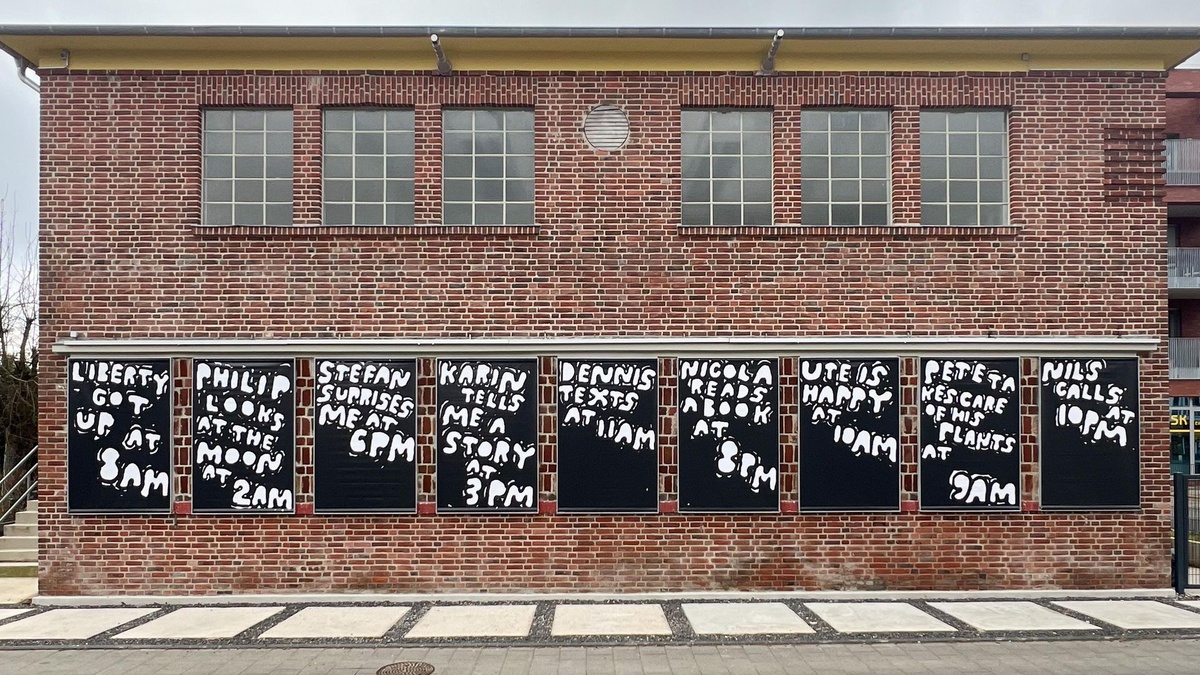 LIBERTY
GOT
UP AT
8AM
PHILIP
LOOKS
AT THE
MOON
AT 2AM
STEFAN
SUPRISES
ME AT
6PM
KARIN
TELLS
ME A
STORY
AT
3PM
DENNIS
TEXTS
AT 11AM
NICOLA
READS
A BOOK
AT
8PM
UTE IS
HAPPY
AT
10AM
PETE TA
KES CARE
OF HIS
PLANTS
AT
9AM
NILS
CALLS
AT
10PM
SK